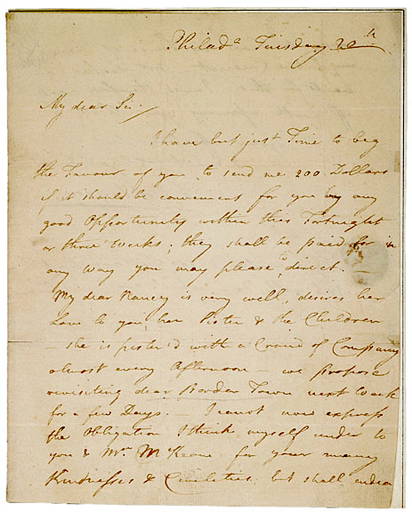 Philad.a Tuesday 20th
My dear Sir/
I have but just Time to beg
the Favour of you to send me 200 Dollars
if it should be convenient for you by any
good Opportunity within this Fortnight
or three Weeks; they shall be paid for in
any way you may please to direct.
My dear Nancy is very well, desires her
Love to you, her Sister & the Children
- she is pester'd with a Croud of Company
almost every Afternoon - we propose
revisiting dear Borden Town next Week
for a few Days. - I cannot now express
the Obligation I think myself under to
you & Mrs. McKean for your many
Kindnesses & Civilities, but shall endeav